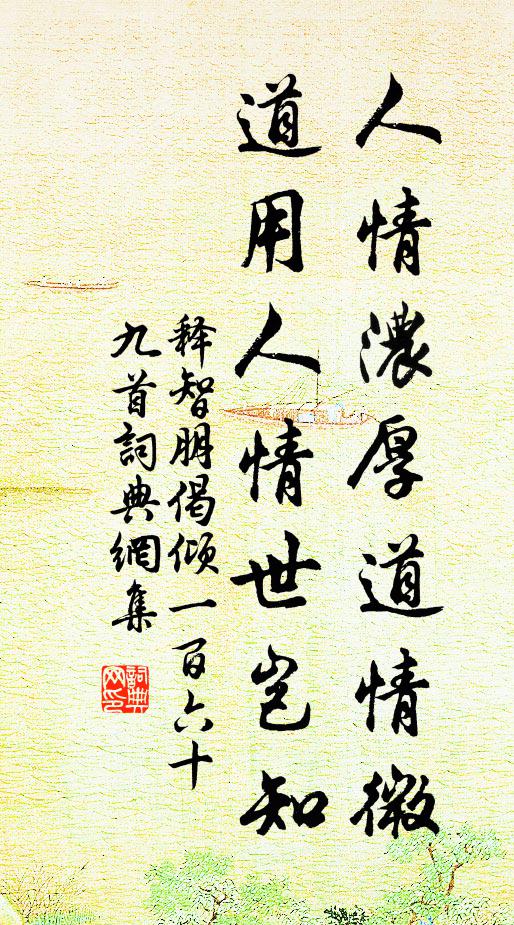 人情濃厚道情微
道用人情世岂知
释智朋偈倾一百六十
九首詞典網集
詞典
网印